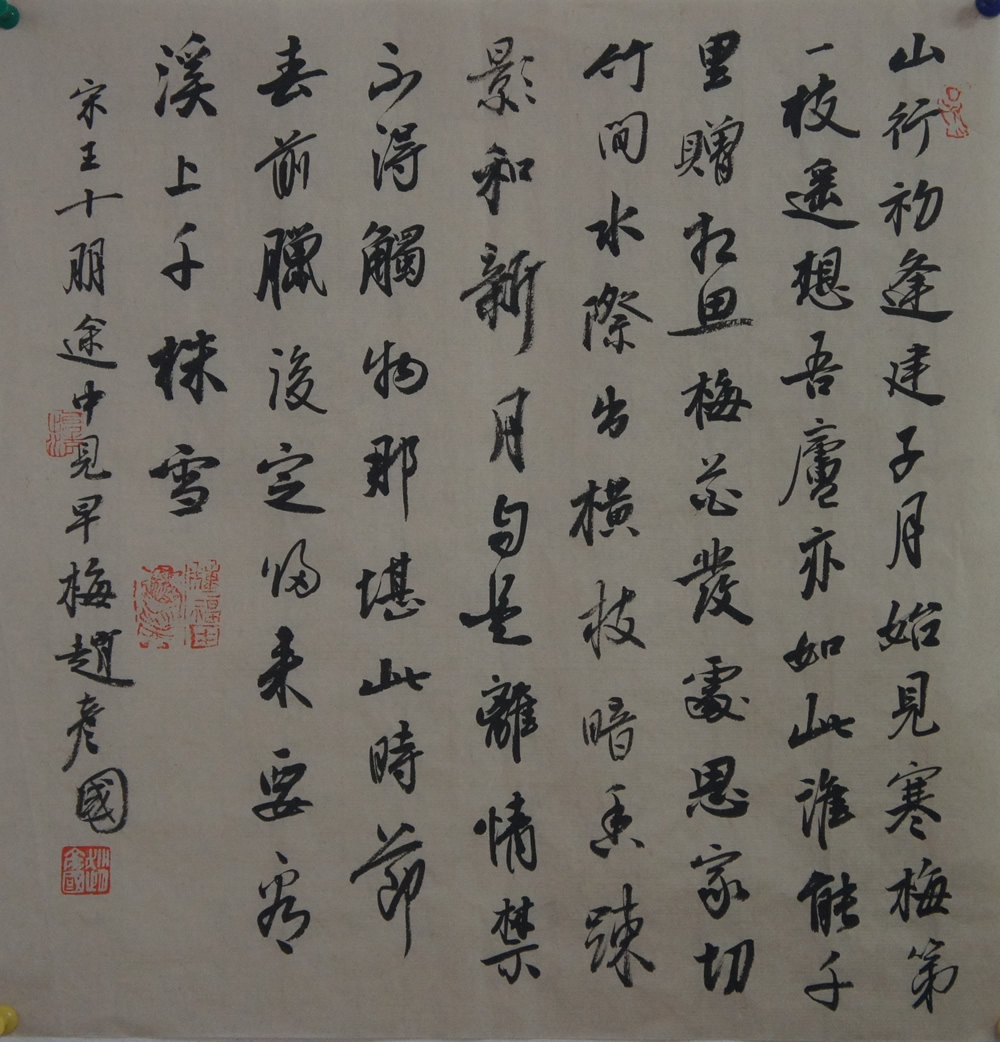 山行初逢建子月始見寒梅第
一枝遥想吾廬亦如此誰能千
里贈相思梅花發處思家切
竹間水際出橫枝暗香疎
影和新月自是離情禁
不得觸物那堪此時節
春前臘後定歸来要看
溪上千株雪
宋王十朋途中見早梅趙彦國
種福田